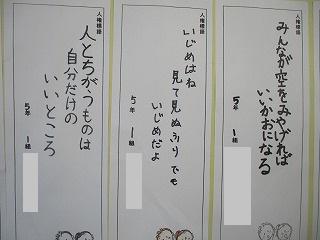 人権標語
みんなが空をみやげれば
いいかおになる
5年 1組
人権標語
いじめはね
見て見ぬふりでも
いじめだよ
5年 1組
人権標語
人とちがうものは
自分だけの
いいところ
5年 1組